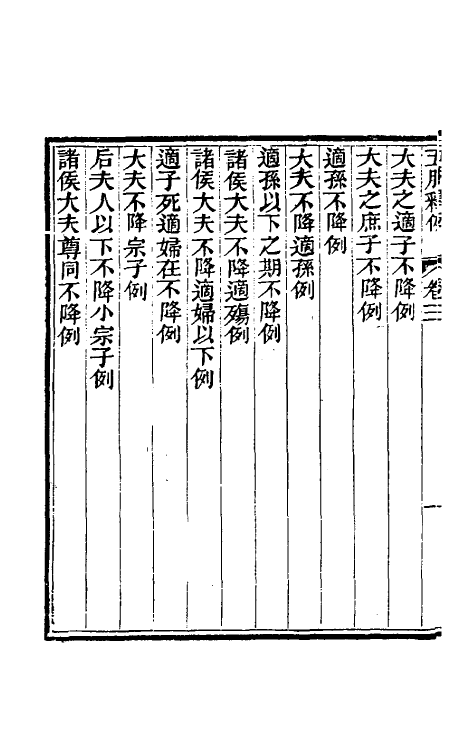 五服釋例 卷三
大夫之適子不降例
大夫之庶子不降例
適孫不降例
大夫不降適孫例
適孫以下之期不降例
諸侯大夫不降適殤例
諸侯大夫不降適婦以下例
適子死適婦在不降例
大夫不降宗子例
后夫人以下不降小宗子例
諸侯大夫尊同不降例